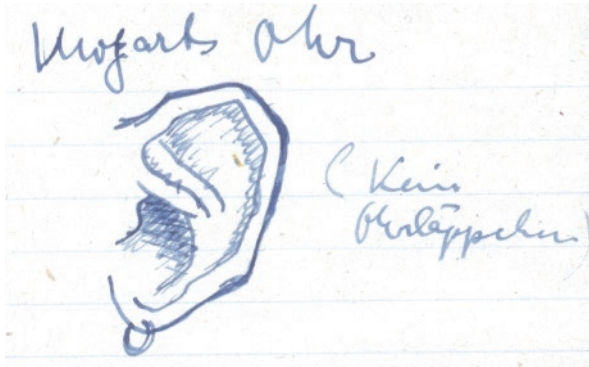 Mozarts Ohr
(Kein
Ohrläppchen)